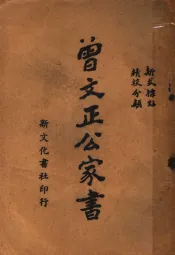 新式標點
精校分類
曾文正公家書
新文化書社印行